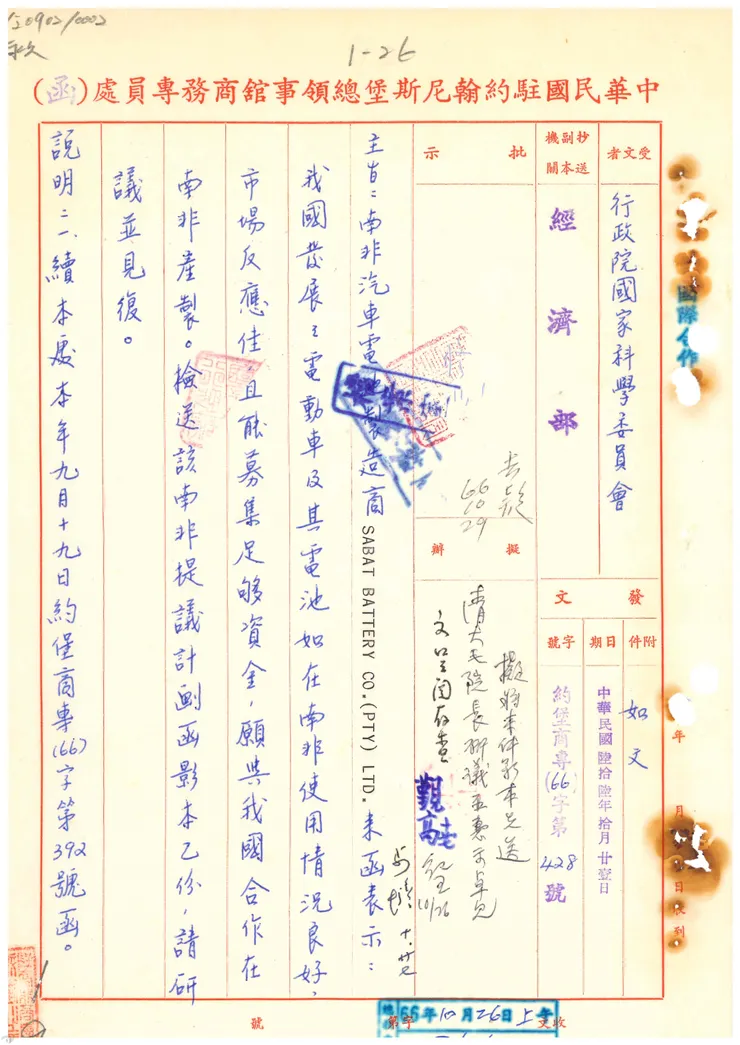 1-26
中華民國駐約翰尼斯堡總領事館商務專員處(函)
受文者
行政院國家科學委員會
抄副機
送本關
經濟部
批示
擬辦
發文
附件
如文
日期
中華民國陸拾陸年拾月廿壹日
字號
約堡商專(66)字第428號
66
10
29
擬將本件影本乙送
清大毛院長研議並惠示卓見
10/26
主旨:南非汽車電池製造商 SABAT BATTERY CO.(PTY) LTD. 來函表示:
我國發展之電動車及其電池如在南非使用情況良好,
市場反應佳,且能募集足够資金,願與我國合作在
南非產製。檢送該南非提議計劃函影本乙份,請研
議並見復。
說明:一、續本處本年九月十九日約堡商專(66)字第392號函。
國際合作
年 月 日收到
66年10月26日上午
收文 字第 號